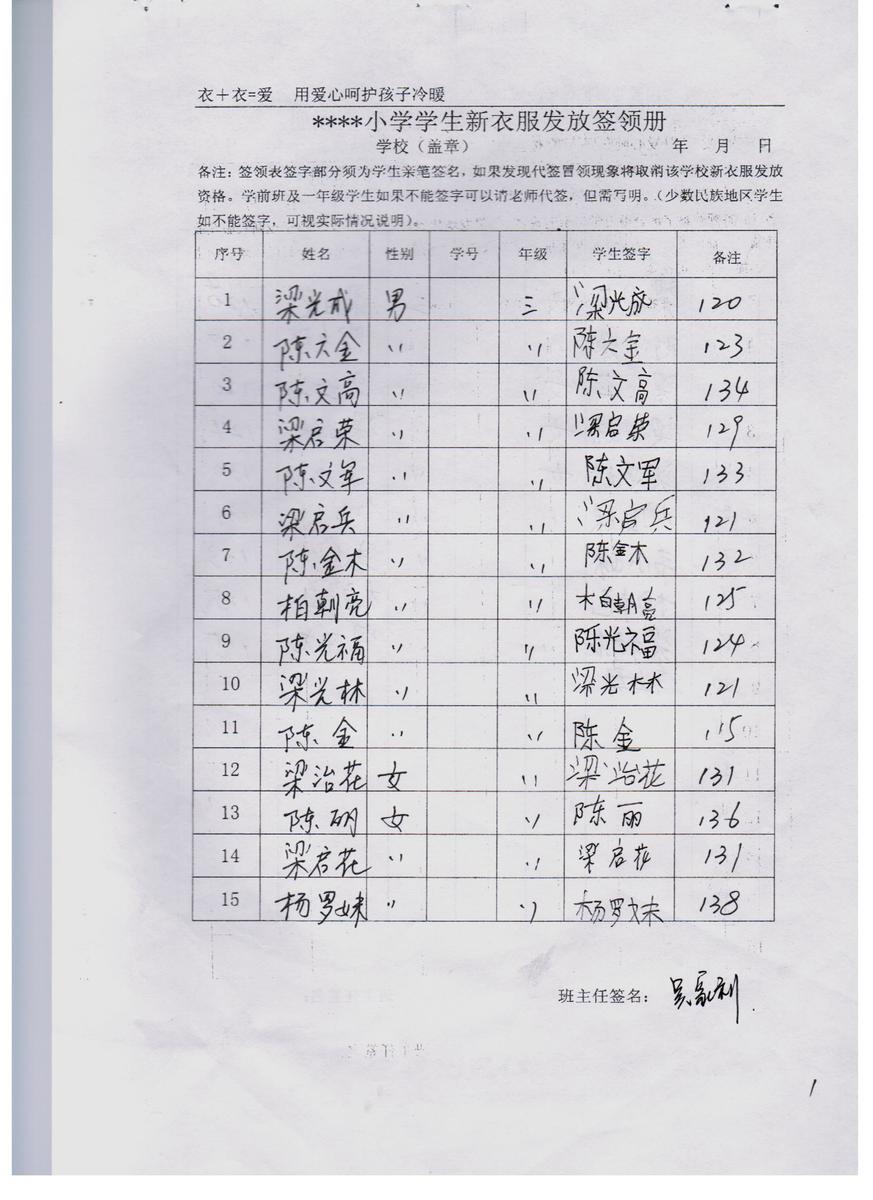 衣+衣=爱 用爱心呵护孩子冷暖
****小学学生新衣服发放签领册
学校(盖章) 年 月 日
备注:签领表签字部分须为学生亲笔签名,如果发现代签冒领现象将取消该学校新衣服发放
资格。学前班及一年级学生如果不能签字可以请老师代签,但需写明。(少数民族地区学生
如不能签字,可视实际情况说明)。
序号 姓名 性别 学号 年级 学生签字 备注
1 梁光成 男 三 梁光成 120
2 陈六金 〃 〃 陈六金 123
3 陈文高 〃 〃 陈文高 134
4 梁启荣 〃 〃 梁启荣 129
5 陈文军 〃 〃 陈文军 133
6 梁启兵 〃 〃 梁启兵 121
7 陈金木 〃 〃 陈金木 132
8 柏朝亮 〃 〃 柏朝亮 125
9 陈光福 〃 〃 陈光福 124
10 梁光林 〃 〃 梁光林 121
11 陈金 〃 〃 陈金 115
12 梁治花 女 〃 梁治花 131
13 陈 女 〃 陈丽 136
14 梁启花 〃 〃 梁启花 131
15 杨罗妹 〃 〃 杨罗妹 138
班主任签名:
1